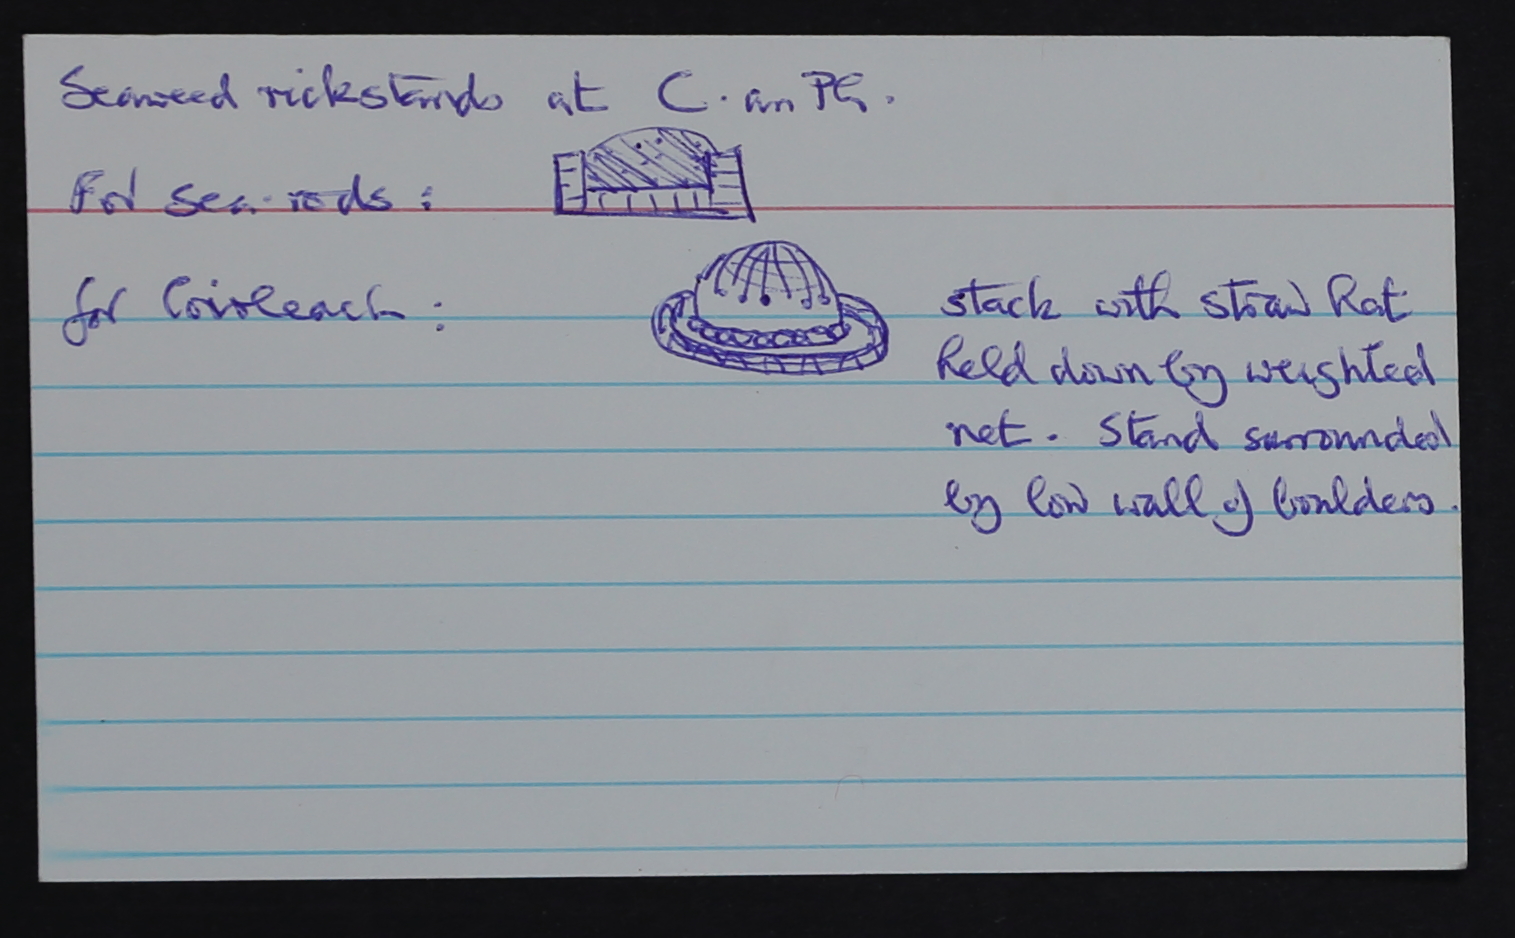 Seaweed rickstands at C. an Ph.
For sea-rods :
for Coirleach : stack with straw hat
held down by weighted
net. Stand surrounded
by low wall of boulders.